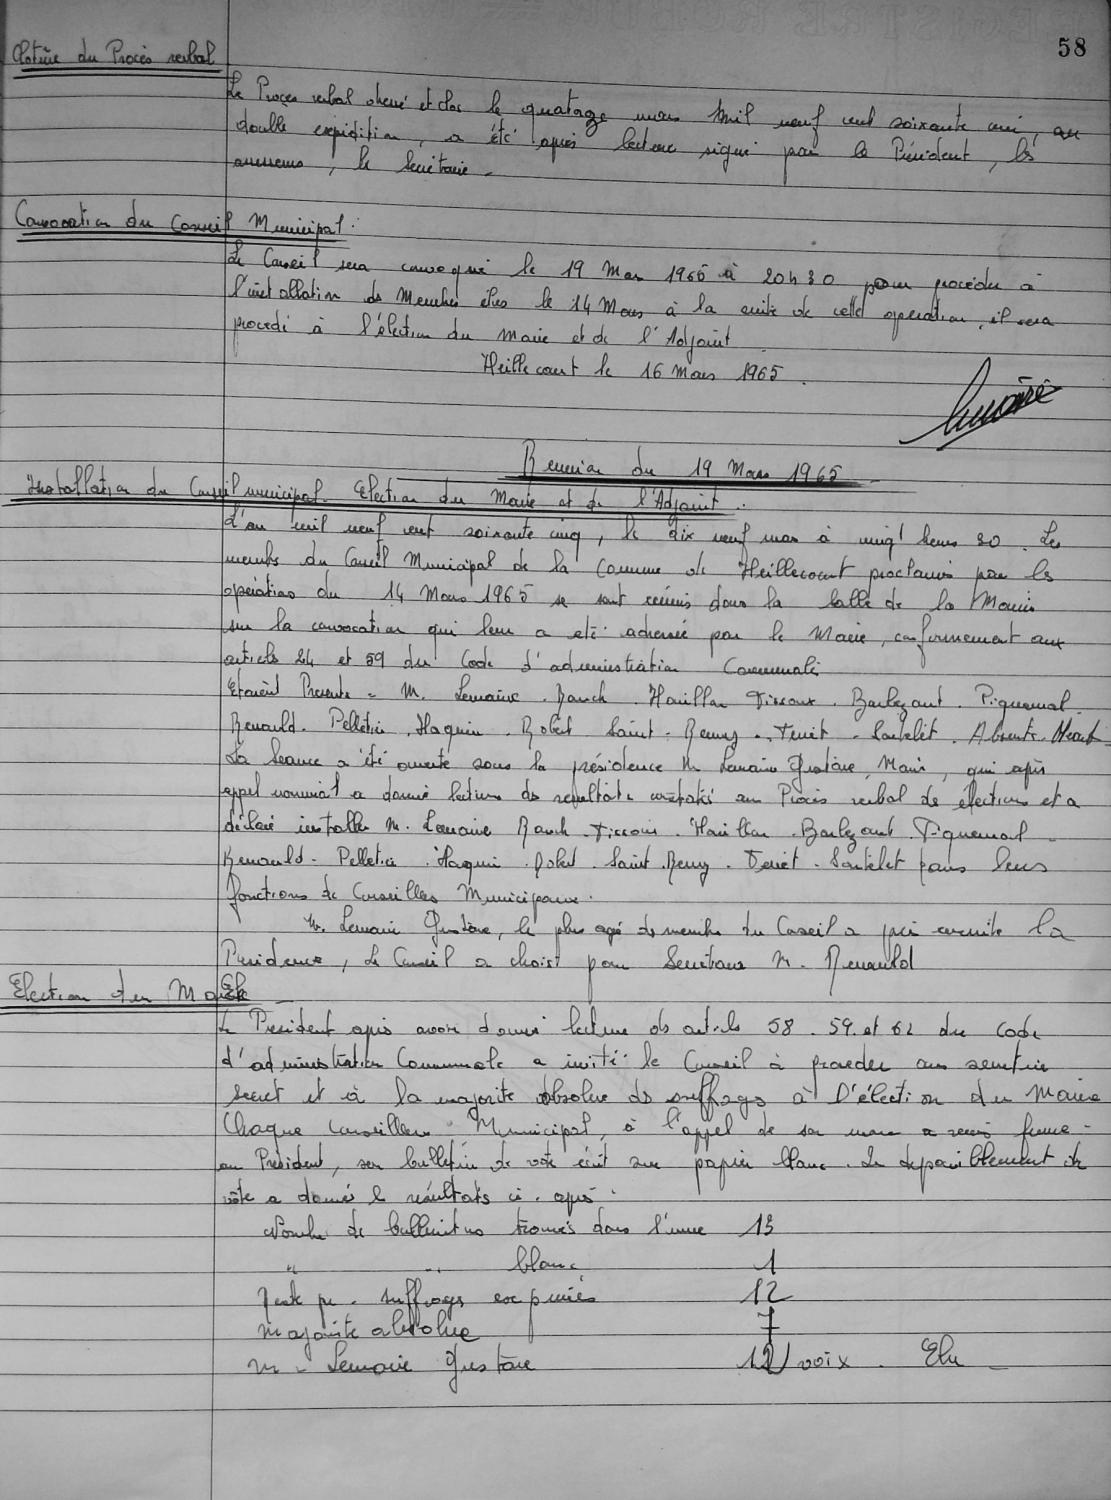 58
Clôture du Procès verbal
Le Procès verbal dressé et clos le quatorze mars mil neuf cent soixante cinq, en
double expédition, a été après lecture signé par le Président, les
assesseurs, le Secrétaire.
Convocation du Conseil Municipal :
Le Conseil sera convoqué le 19 Mars 1965 à 20h30 pour procéder à
l'installation des Membres élus le 14 Mars à la suite de cette opération, il sera
procédé à l'élection du Maire et de l'Adjoint
Heillecourt le 16 Mars 1965.
Lemoire
Reunion du 19 Mars 1965
Installation du Conseil municipal. Election du Maire et de l'Adjoint.
L'an mil neuf cent soixante cinq, le dix neuf mars à vingt heures 30. Les
membres du Conseil Municipal de la Commune de Heillecourt proclamés par les
opérations du 14 Mars 1965 se sont réunis dans la Salle de la Mairie
sur la convocation qui leur a été adressée par le Maire, conformement aux
articles 24 et 59 du Code d'administration Communale
Etaient Presents = M. Lemoire . Ranck . Haillan Tissoux . Barlezant . Piquemal.
Renauld. Pelletier . Haquin . Robert Saint-Remy . Teniet . Santelet . Absents
La Seance a été ouverte sous la présidence M. Lemoire Gustave, Maire, qui après
appel nominal a donné lecture des resultats constatés au Procès verbal des élections et a
déclaré installer M. Lemoire Ranck . Tissoux . Haillan . Barlezant . Piquemal
Renauld - Pelletier . Haquin . Robert Saint Remy . Teniet . Santelet dans leurs
fonctions de Conseillers Municipaux.
M. Lemoire Gustave, le plus agé des membres du Conseil a pris ensuite la
Présidence, Le Conseil a choisi pour Secrétaire M. Renauld
Election du Maire
Le President après avoir donné lecture des articles 58 . 59. et 62 du Code
d'administration Communale a invité le Conseil à proceder au scrutin
secret et à la majorite absolue des suffrages à l'élection du Maire
Chaque Conseiller Municipal, à l'appel de son nom a remis fermé
au Président, son bulletin de vote écrit sur papier blanc. Le depouiblement de
vote a donné les résultats ci-après :
Nombre de bulletins trouvés dans l'urne 13
" " blanc 1
Reste pr. suffrages exprimés 12
Majorité absolue 7
M. Lemoire Gustave 12 voix . Elu